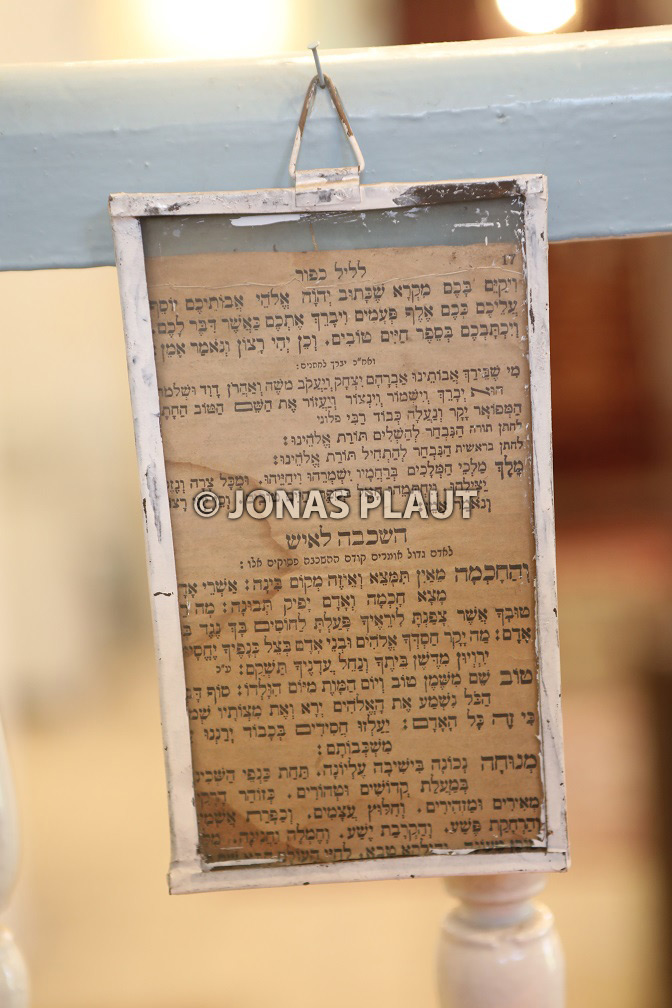 17
לליל כפור
וִיקַיֵּם בָּכֶם מִקְרָא שֶׁכָּתוּב יְהֹוָה אֱלֹהֵי אֲבוֹתֵיכֶם יוֹסֵף
עֲלֵיכֶם כָּכֶם אֶלֶף פְּעָמִים וִיבָרֵךְ אֶתְכֶם כַּאֲשֶׁר דִּבֶּר לָכֶם
וְיִכְתָּבְכֶם בְּסֵפֶר חַיִּים טוֹבִים. וְכֵן יְהִי רָצוֹן וְנֹאמַר אָמֵן
ואח״כ יברך לחתנים:
מִי שֶׁבֵּירַךְ אֲבוֹתֵינוּ אַבְרָהָם יִצְחָק וְיַעֲקֹב מֹשֶׁה וְאַהֲרֹן דָּוִד וּשְׁלֹמֹה
הוּא יְבָרֵךְ וְיִשְׁמוֹר וְיִנְצוֹר וְיַעֲזוֹר אֶת הַשֵּׁם הַטּוֹב הֶחָתָן
הַמְּפוֹאָר יָקָר וְנַעֲלֶה כְּבוֹד רַבִּי פלוני
לחתן תורה הַנִּבְחָר לְהַשְׁלִים תּוֹרַת אֱלֹהֵינוּ:
לחתן בראשית הַנִּבְחָר לְהַתְחִיל תּוֹרַת אֱלֹהֵינוּ:
מֶלֶךְ מַלְכֵי הַמְּלָכִים בְּרַחֲמָיו יִשְׁמְרֵהוּ וִיחַיֵּהוּ. וּמִכָּל צָרָה וָנֶזֶק
© JONAS PLAUT
השכבה לאיש
לאדם גדול אומרים קודם ההשכבה פסוקים אלו:
וְהַחָכְמָה מֵאַיִן תִּמָּצֵא וְאֵיזֶה מְקוֹם בִּינָה: אַשְׁרֵי אָדָם
מָצָא חָכְמָה וְאָדָם יָפִיק תְּבוּנָה: מָה
טוּבְךָ אֲשֶׁר צָפַנְתָּ לִּירֵאֶיךָ פָּעַלְתָּ לַחוֹסִים בָּךְ נֶגֶד בְּנֵי
אָדָם: מַה יָּקָר חַסְדְּךָ אֱלֹהִים וּבְנֵי אָדָם בְּצֵל כְּנָפֶיךָ יֶחֱסָיוּן
יִרְוְיֻן מִדֶּשֶׁן בֵּיתֶךָ וְנַחַל עֲדָנֶיךָ תַשְׁקֵם:
טוֹב שֵׁם מִשֶּׁמֶן טוֹב וְיוֹם הַמָּוֶת מִיּוֹם הִוָּלְדוֹ: סוֹף דָּבָר
הַכֹּל נִשְׁמָע אֶת הָאֱלֹהִים יְרָא וְאֶת מִצְוֹתָיו שְׁמוֹר
כִּי זֶה כָּל הָאָדָם: יַעְלְזוּ חֲסִידִים בְּכָבוֹד יְרַנְּנוּ
מִשְׁכְּבוֹתָם:
מְנוּחָה נְכוֹנָה בִּישִׁיבָה עֶלְיוֹנָה. תַּחַת כַּנְפֵי הַשְּׁכִינָה
בְּמַעֲלַת קְדוֹשִׁים וּטְהוֹרִים. כְּזוֹהַר הָרָקִיעַ
מְאִירִים וּמַזְהִירִים. וְחִלּוּץ עֲצָמִים. וְכַפָּרַת אֲשָׁמִים
וְהַרְחָקַת פֶּשַׁע. וְהַקְרָבַת יֶשַׁע. וְחֶמְלָה וַחֲנִינָה.